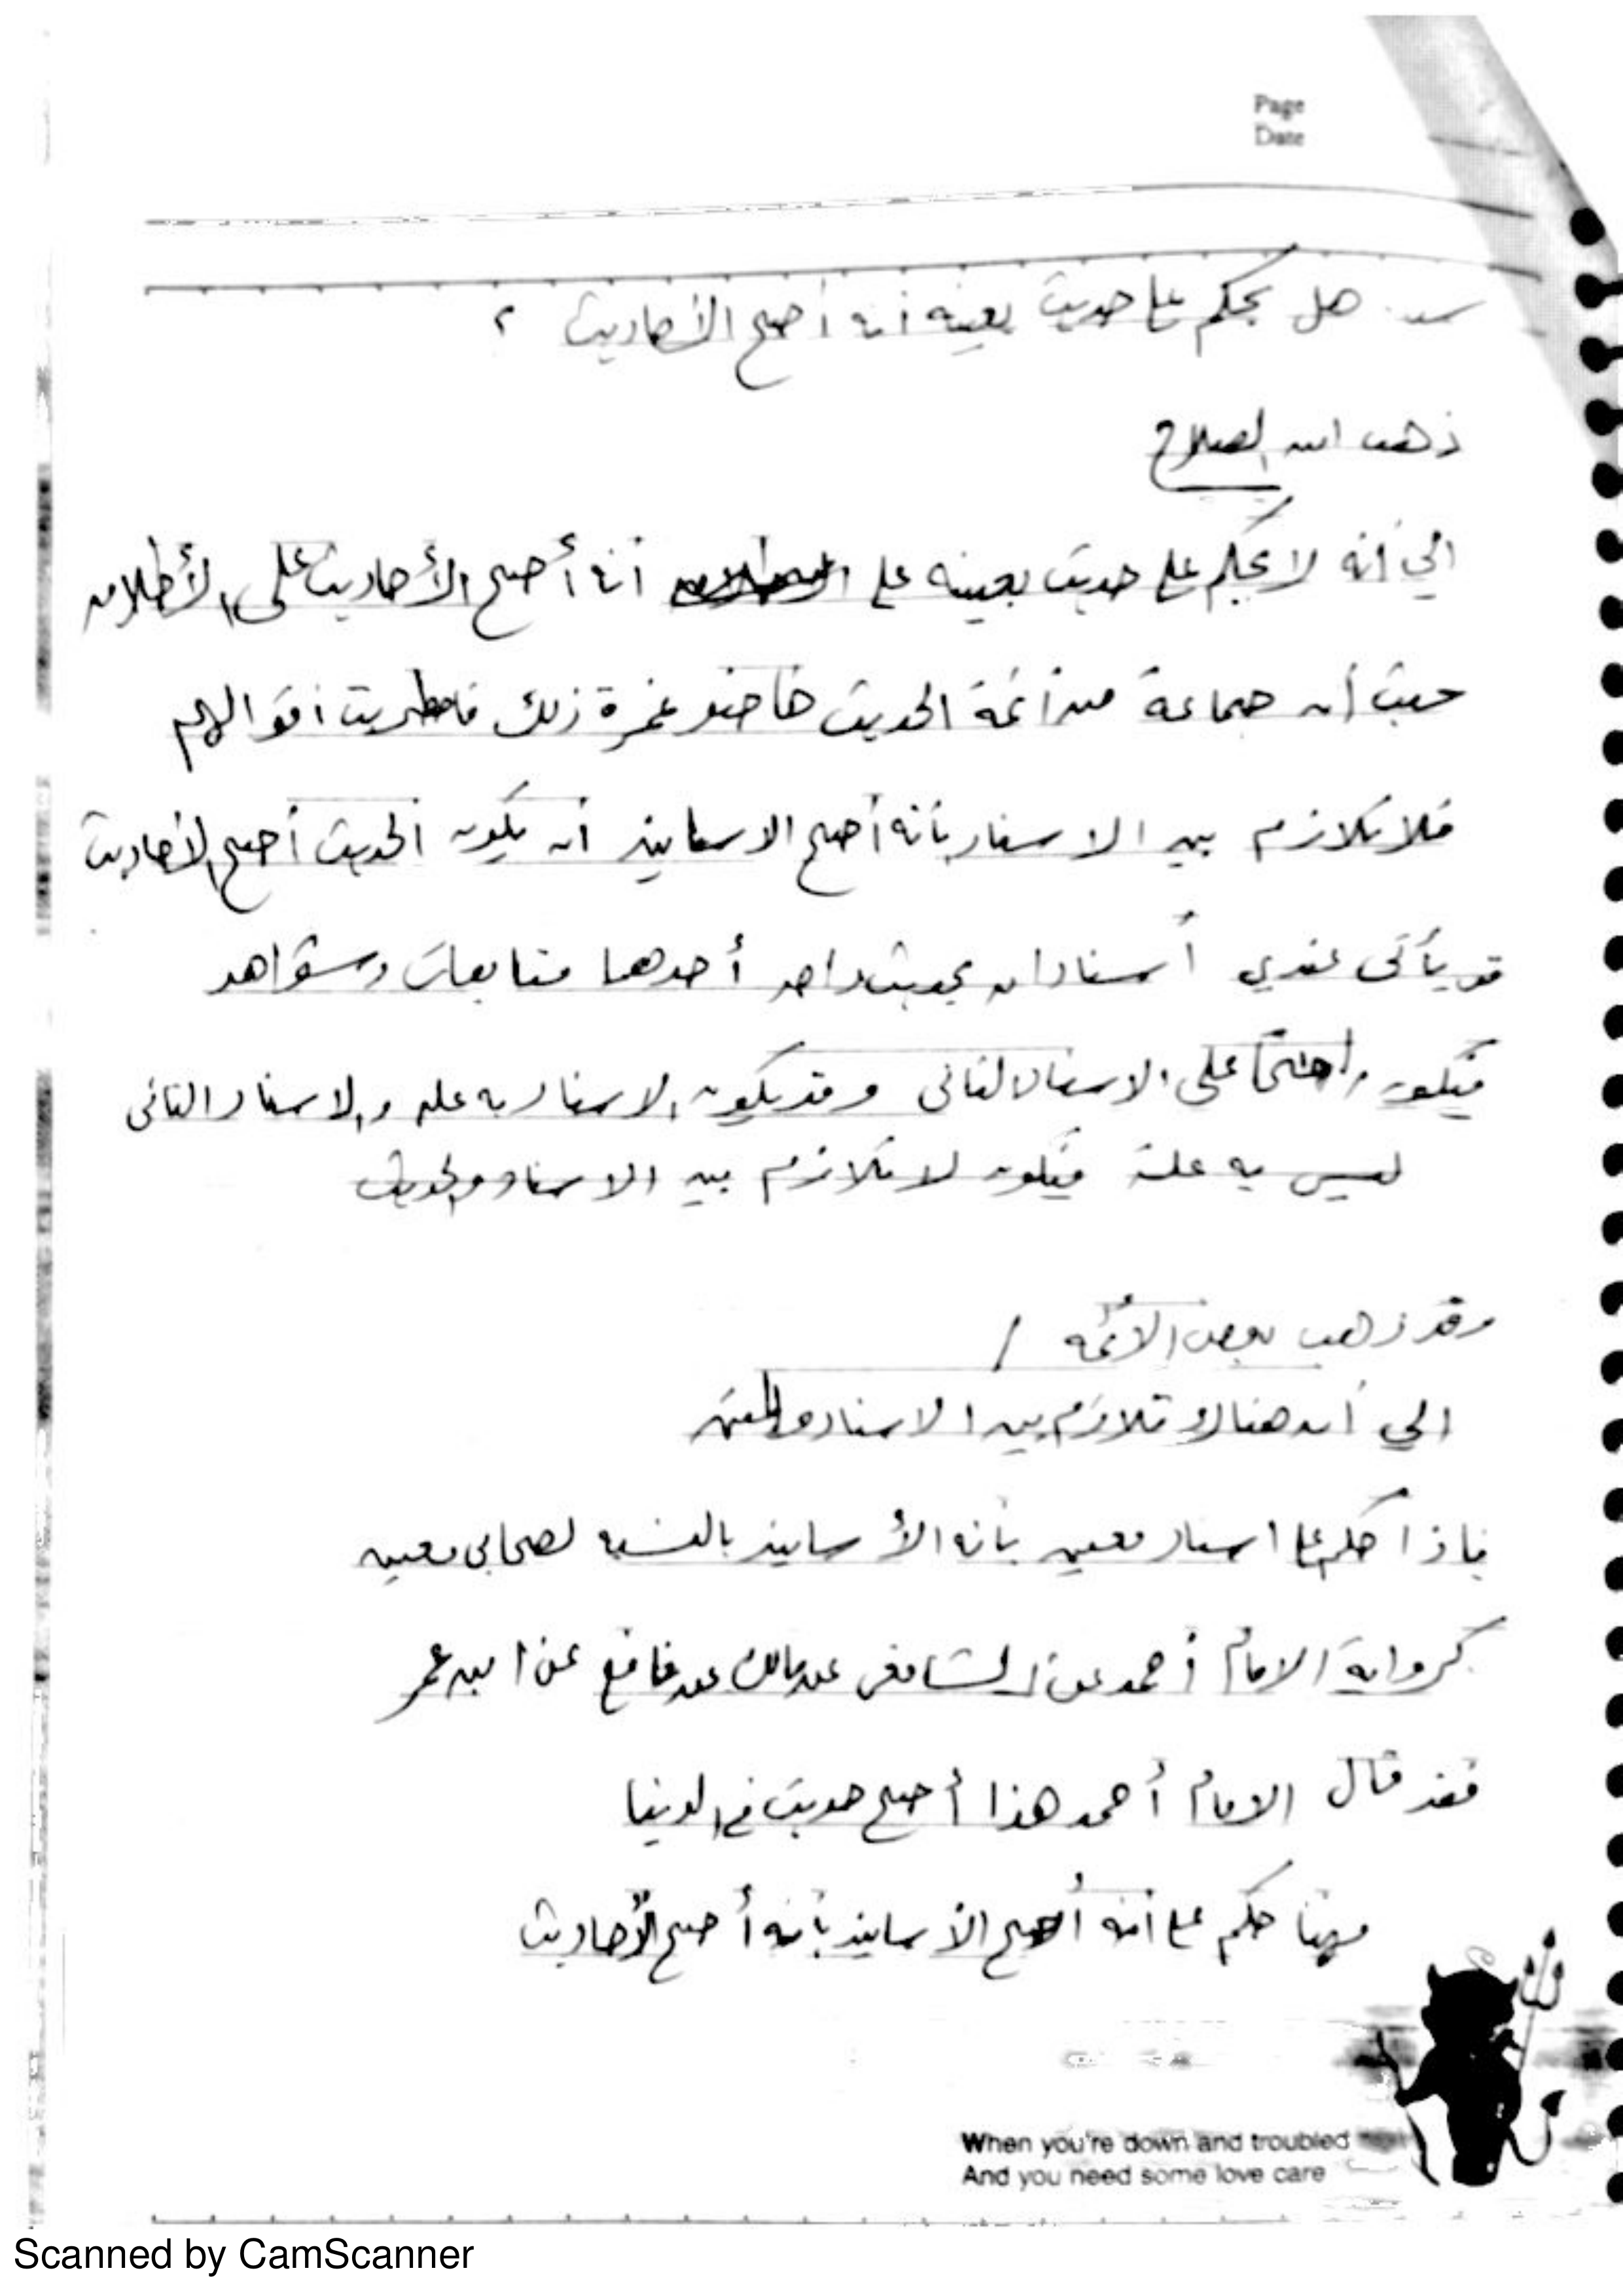 Page
Date
س. هل يحكم على حديث بعينه أنه أصح الأحاديث ؟
ذهب ابن الصلاح
الي أنه لا يحكم على حديث بعينه على أنه أصح الأحاديث على الأطلاق
حيث أن جماعة من أئمة الحديث خاضو غمرة ذلك فاضطربت أقوالهم
فلا تلازم بين الاسناد بأنه أصح الاسانيد أن يكون الحديث أصح الأحاديث
قد يأتى عندي أسنادان بحديث واحد أحدهما متابعات وشواهد
فيكون راجحاً على الاسناد الثانى وقد يكون الاسناد به عله والاسناد الثانى
ليس به علة فيكون لا تلازم بين الاسناد والحديث
وقد ذهب بعض الأئمه /
الي أن هناك تلازم بين الاسناد والمتن
فإذا حكم على اسناد معين بأنه الأسانيد بالنسبه لصحابى معين
كرواية الامام أحمد عن الشافعى عن مالك عن نافع عن ابن عمر
فقد قال الامام أحمد هذا أصح حديث في الدنيا
فهنا حكم على أنه أصح الأسانيد بأنه أصح الأحاديث
When you're down and troubled
And you need some love care
Scanned by CamScanner